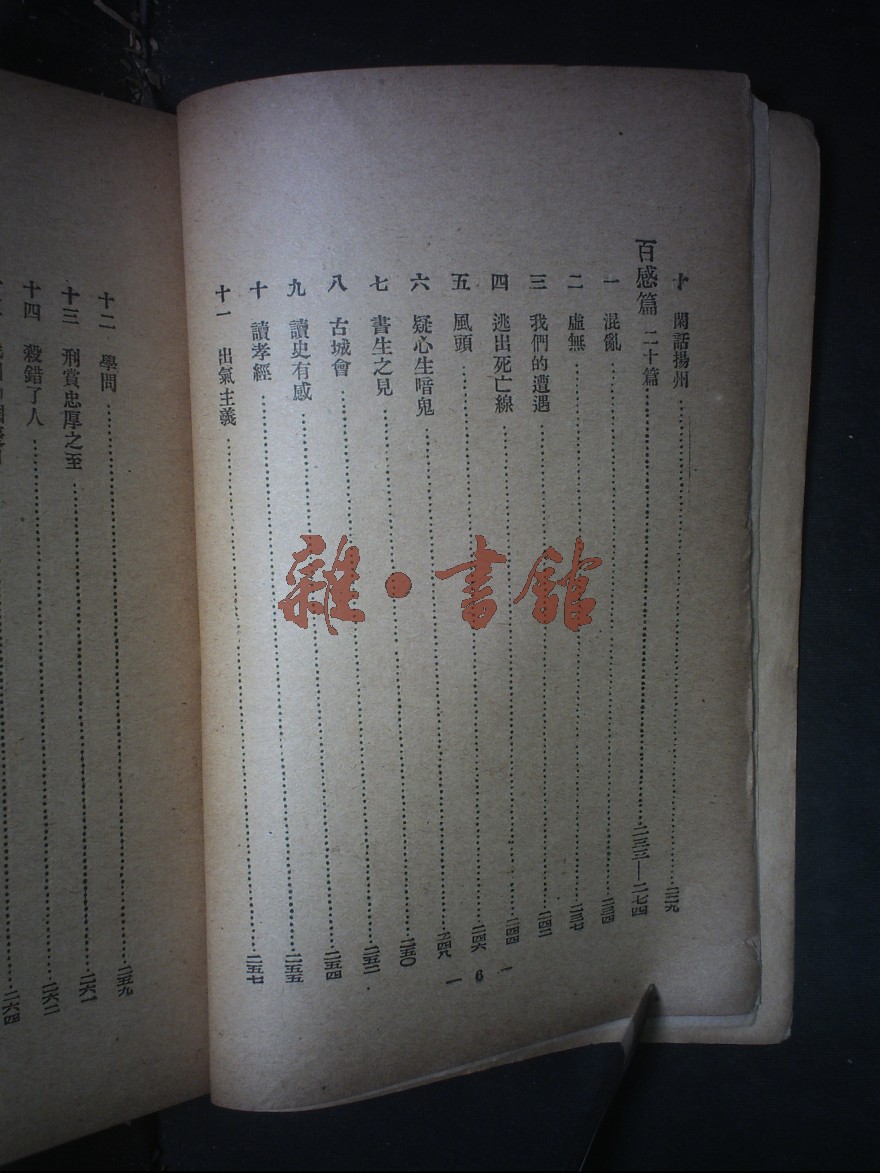 十 閑話揚州 二二九
百感篇 二十篇 二三三—二七四
一 混亂 二三四
二 虛無 二三七
三 我們的遭遇 二四二
四 逃出死亡線 二四四
五 風頭 二四六
六 疑心生暗鬼 二四八
七 書生之見 二五〇
八 古城會 二五二
九 讀史有感 二五四
十 讀孝經 二五五
十一 出氣主義 二五七
— 6 —
十二 學問 二五九
十三 刑賞忠厚之至 二六一
十四 殺錯了人 二六二
二六四
雜·書館